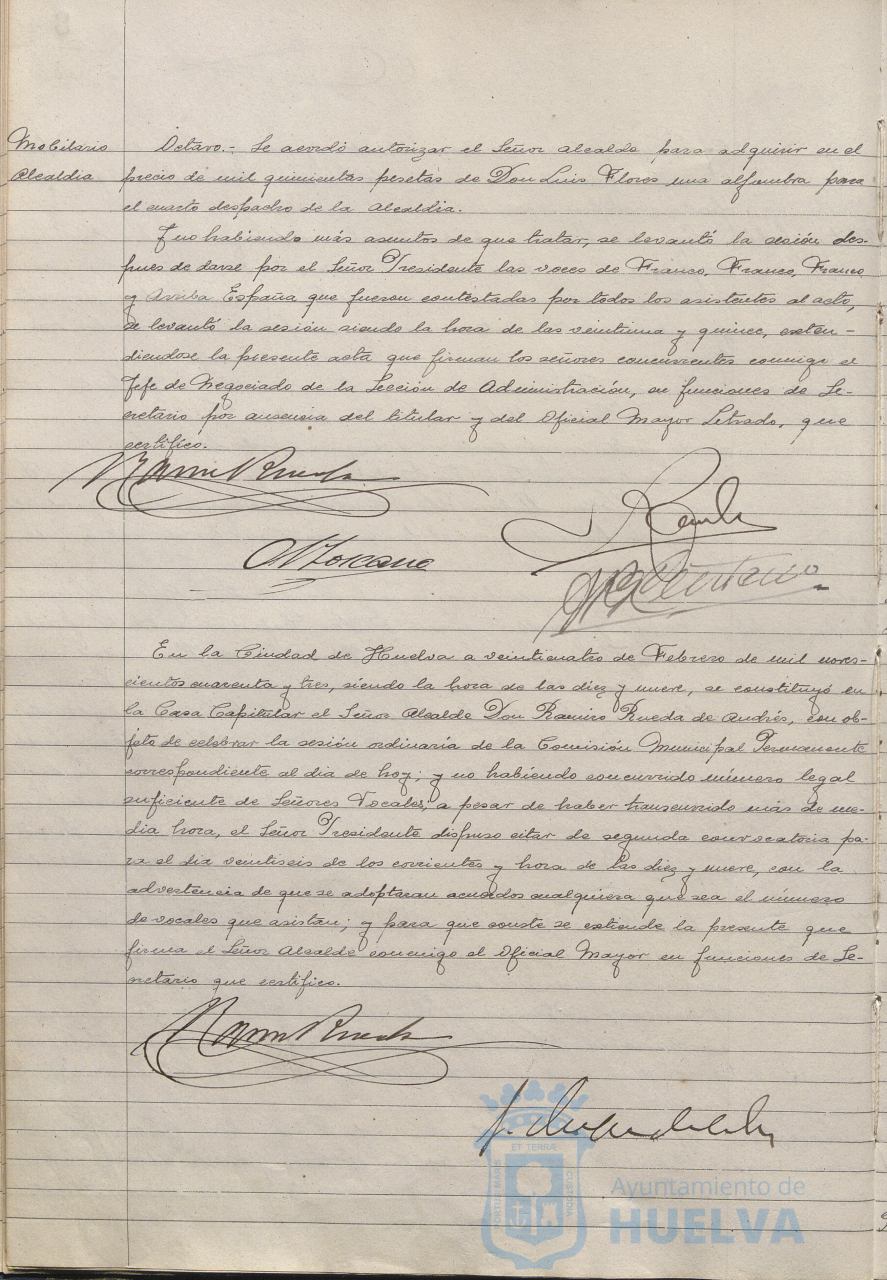 Mobiliario
Alcaldia
Octavo.- Se acordó autorizar el Señor Alcalde para adquirir en el
precio de mil quinientas pesetas de Don Luis Flores una alfombra para
el cuarto despacho de la Alcaldia.
Y no habiendo más asuntos de que tratar, se levantó la sesión des-
pues de darse por el Señor Presidente las voces de Franco, Franco, Franco
y Arriba España que fueron contestadas por todos los asistentes al acto,
se levantó la sesión siendo la hora de las veintiuna y quince, exten-
diendose la presente acta que firman los señores concurrentes conmigo el
Jefe de Negociado de la Sección de Administración, en funciones de Se-
cretario por ausencia del titular y del Oficial Mayor Letrado, que
certifico.
Ramiro Rueda
En la Ciudad de Huelva a veinticuatro de Febrero de mil noves-
cientos cuarenta y tres, siendo la hora de las diez y nueve, se constituyó en
la Casa Capitular el Señor Alcalde Don Ramiro Rueda de Andrés, con ob-
jeto de celebrar la sesión ordinaria de la Comisión Municipal Permanente
correspondiente al dia de hoy; y no habiendo concurrido número legal
suficiente de Señores Vocales, a pesar de haber transcurrido más de me-
dia hora, el Señor Presidente dispuso citar de segunda convocatoria pa-
ra el dia veintiseis de los corrientes y hora de las diez y nueve, con la
advertencia de que se adoptaran acuerdos cualquiera que sea el número
de vocales que asistan; y para que conste se extiende la presente que
firma el Señor Alcalde conmigo el Oficial Mayor en funciones de Se-
cretario que certifico.
Ramiro Rueda
ET TERRÆ
PORTUS MARIS
CUSTODIA
Ayuntamiento de
HUELVA